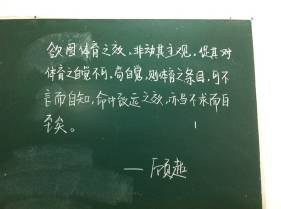 欲图体育之效，非动其主观，促其对
体育之自觉不可。苟自觉，则体育之条目，可不
言而自知，命中致远之效，亦当不求而自
至矣。
——顾超